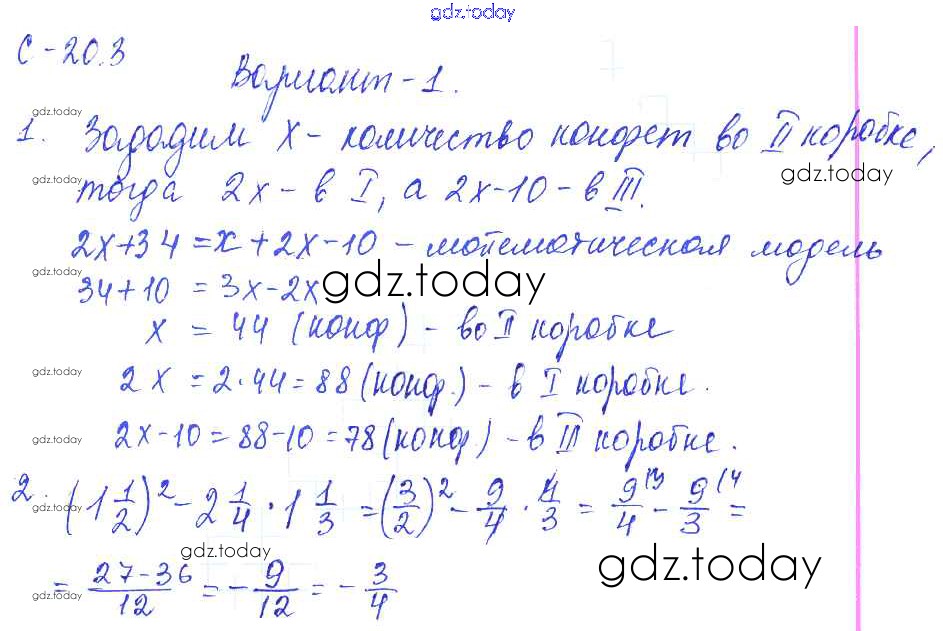 gdz.today
С-20.3
Вариант-1.
gdz.today
1. Зададим x - количество конфет во II коробке,
gdz.today
gdz.today
тогда 2x - в I, а 2x-10 - в III.
2x+34 = x+2x-10 - математическая модель
gdz.today
34+10 = 3x-2x
gdz.today
x = 44 (конф) - во II коробке
gdz.today
2x = 2·44 = 88 (конф.) - в I коробке.
gdz.today
2x-10 = 88-10 = 78 (конф) - в III коробке.
2. (1 1/2)^2 - 2 1/4 · 1 1/3 = (3/2)^2 - 9/4 · 4/3 = 9/4 (3 - 9/3 (4 =
gdz.today
gdz.today
gdz.today
= 27-36/12 = - 9/12 = - 3/4
gdz.today